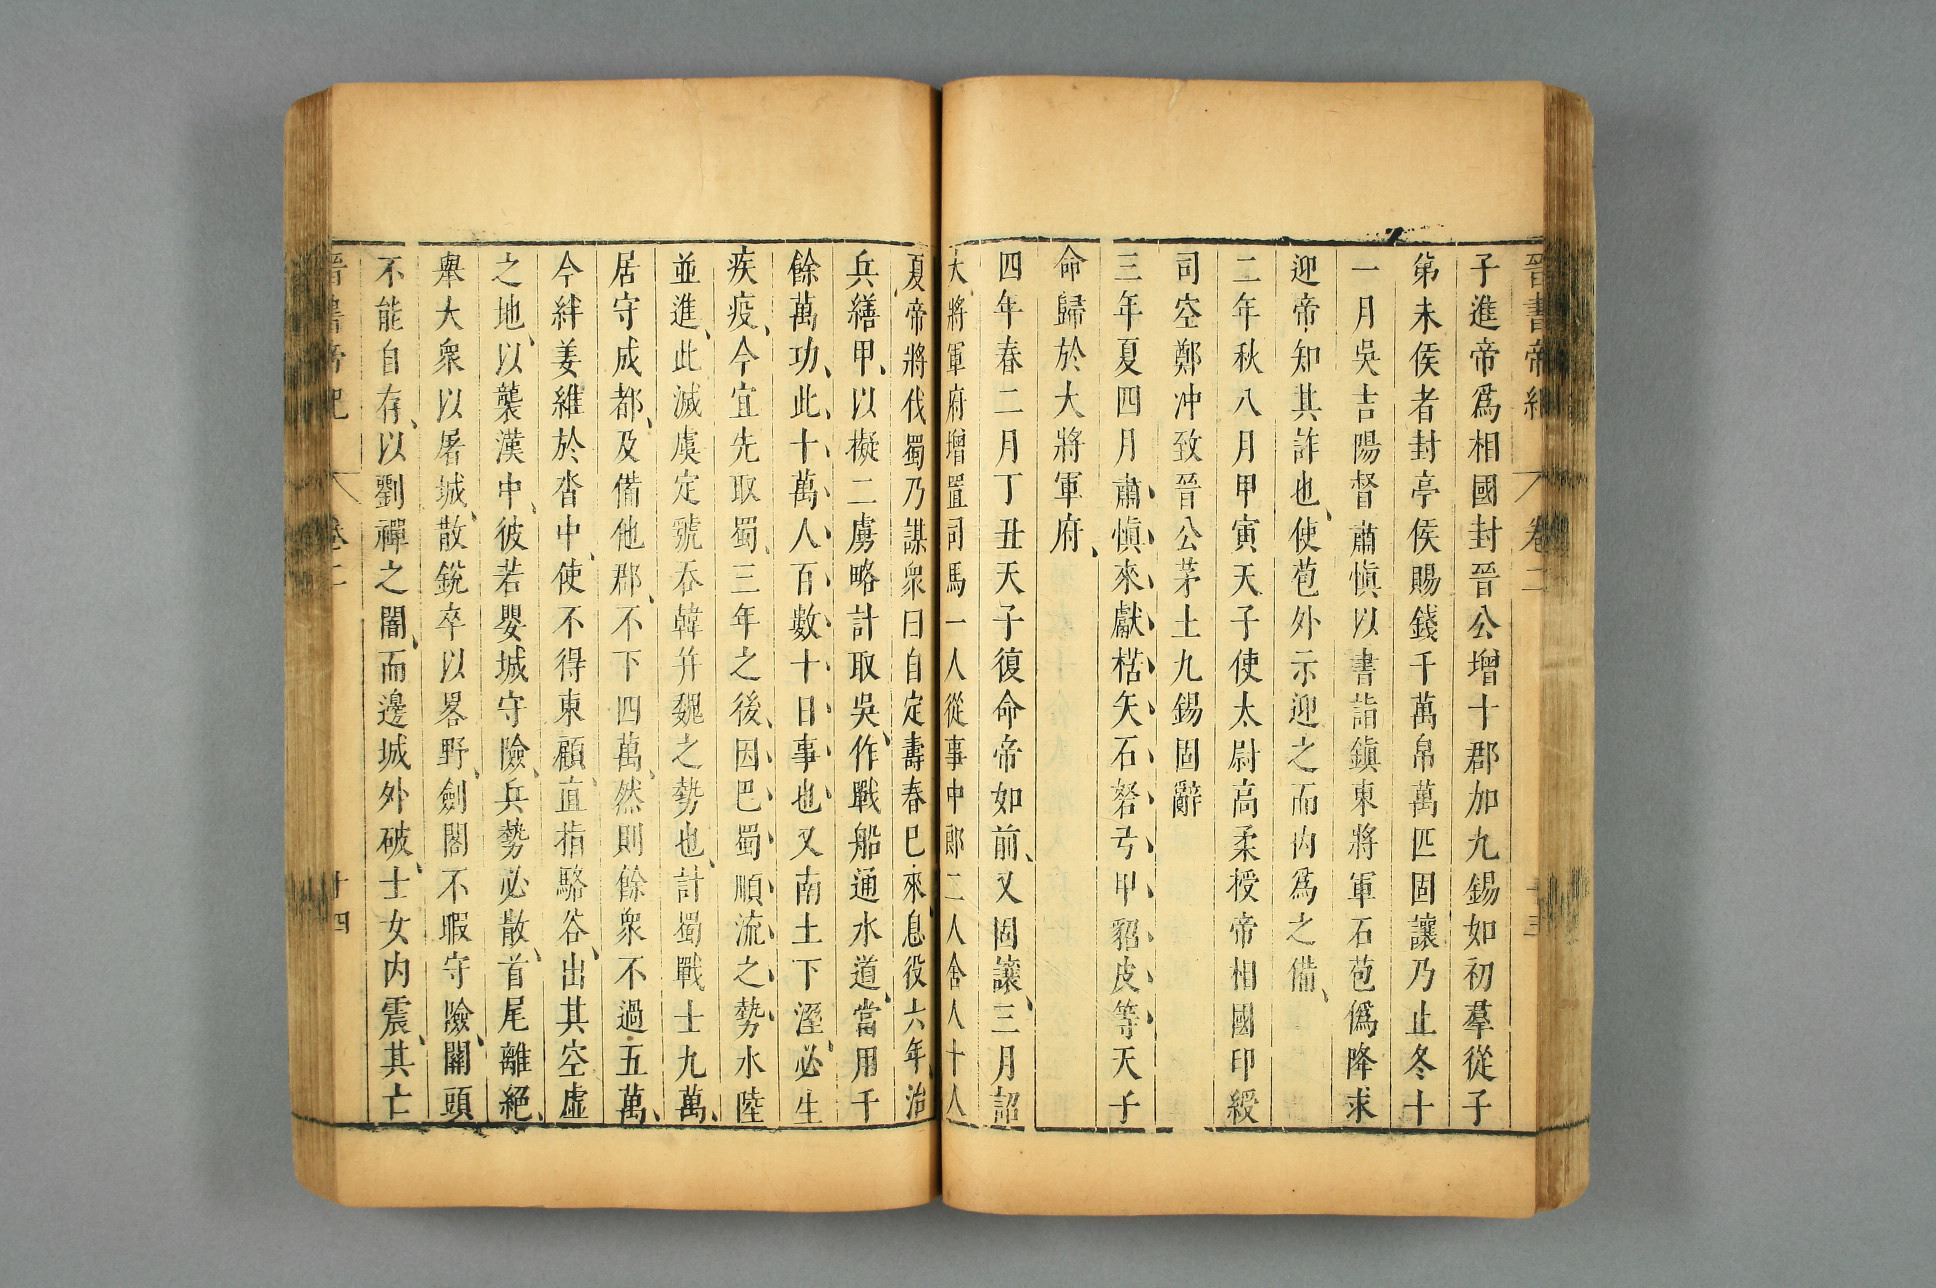 晉書帝紀 卷二
子進帝爲相國封晉公增十郡加九錫如初羣從子
弟未侯者封亭侯賜錢千萬帛萬匹固讓乃止冬十
一月吳吉陽督蕭愼以書詣鎭東將軍石苞僞降求
迎帝知其詐也使苞外示迎之而內爲之備
二年秋八月甲寅天子使太尉高柔授帝相國印綬
司空鄭冲致晉公茅土九錫固辭
三年夏四月肅愼來獻楛矢石砮弓甲貂皮等天子
命歸於大將軍府
四年春二月丁丑天子復命帝如前又固讓三月詔
大將軍府增置司馬一人從事中郞二人舍人十人
夏帝將伐蜀乃謀衆曰自定壽春已來息役六年治
兵繕甲以擬二虜略計取吳作戰船通水道當用千
餘萬功此十萬人百數十日事也又南土下溼必生
疾疫今宜先取蜀三年之後因巴蜀順流之勢水陸
並進此滅虞定虢吞韓并魏之勢也計蜀戰士九萬
居守成都及備他郡不下四萬然則餘衆不過五萬
今絆姜維於沓中使不得東顧直指駱谷出其空虛
之地以襲漢中彼若嬰城守險兵勢必散首尾離絕
舉大衆以屠城散銳卒以畧野劍閣不暇守險關頭
不能自存以劉禪之闇而邊城外破士女內震其亡
晉書帝紀 卷二 十四